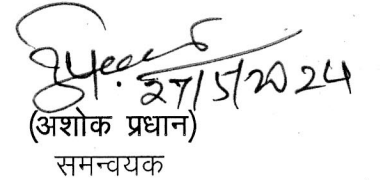 27/5/2024
(अशोक प्रधान)
समन्वयक